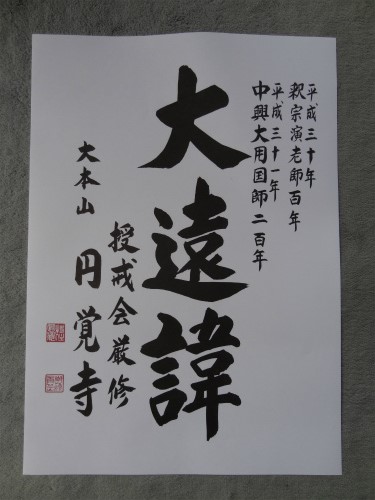 平成三十年
釈宗演老師百年
平成三十一年
中興大用国師二百年
大遠諱
授戒会厳修
大本山 円覚寺